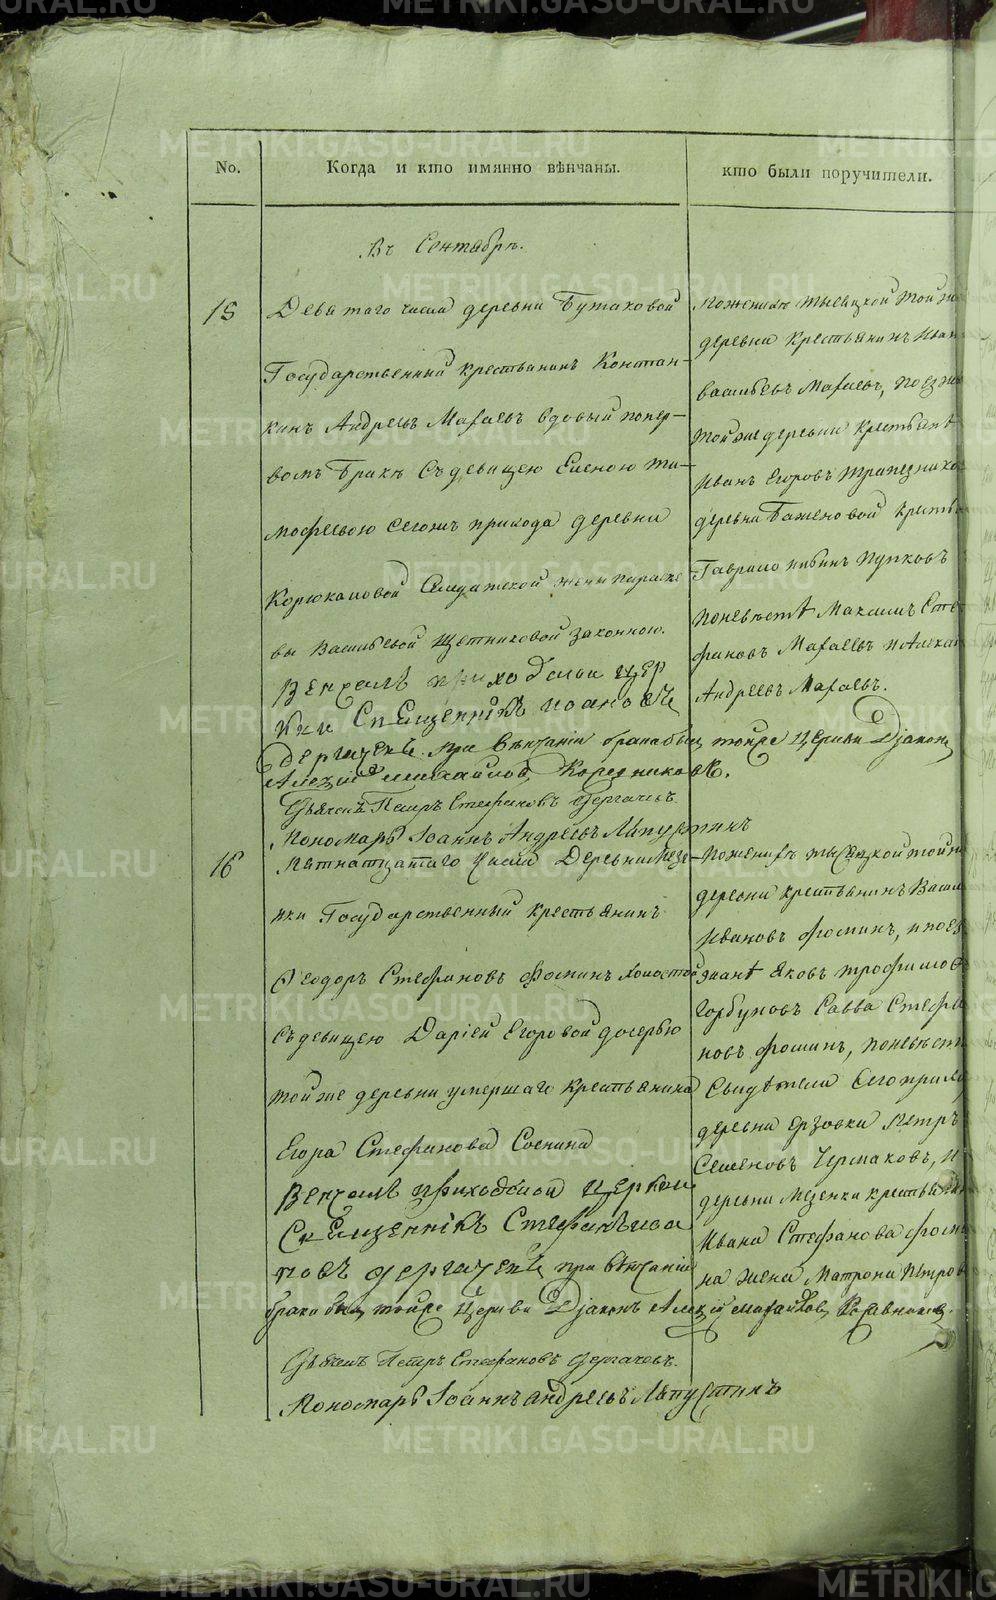 No.
Когда и кто имянно вѣнчаны.
кто были поручители.
Въ Сентябрѣ.
15
Девятаго числа деревни Бутаковой
Государственный крестьянинъ Констан-
кинъ Андреевъ Мазаевъ вдовый попер-
вомъ бракѣ съ девицею Еленою ти-
мофеевою сегожъ прихода деревни
Корюкаловой Солдатской жены параске-
вы Васильевой Щетниковой законною.
Венчалъ приходской цер
кви Священникъ иоаннъ
Дергачевъ. при вѣнчаніи брака былъ тойже церкви Дjаконъ
Алезій михайловъ Коровниковъ.
Дьячекъ Петръ Стефановъ Дергачевъ.
Пономарь Іоаннъ Андреевъ Лапустинъ
поженихѣ тысяцкой тойже
деревни крестьянинъ Иван
васильевъ Мазаевъ, поезжа
тойже деревни крестьянѣ
Иванъ Егоровъ трапезнико
деревни Баженовой крестья
Гаврило Пупковъ
поневѣстѣ Максимъ Сте-
фановъ Мазаевъ и Алекса
Андреевъ Мазаевъ.
16
Пятнатцатаго числа Деревни Мезе-
нки Государственный крестьянинъ
Феодоръ Стефановъ Фоминъ холостой
съ девицею Даріей Егоровой дочерью
тойже деревни умершаго крестьянина
Егора Стефанова Сонина
Венчалъ приходской церкви
Священникъ Стефанъ
новъ Дергачевъ при вѣнчаніи
брака былъ тойже церкви Дjаконъ Алезій михайловъ Коровниковъ.
Дьячекъ Петръ Стефановъ Дергачевъ.
Пономарь Іоаннъ андреевъ Лапустинъ
поженихѣ тысяцкой тойже
деревни крестьянинъ Васил
Ивановъ Фоминъ, и поез
жанѣ Яковъ трофимов
Горбуновъ Савва Стефа
новъ Фоминъ, поневѣстѣ
Свидѣтели Сего прихо
деревни ерзовки Петръ
Семеновъ Чермаковъ, и
деревни Мезенки крестьяни
Ивана Стефанова Фоми
на жена Матрона Петров
METRIKI.GASO-URAL.RU